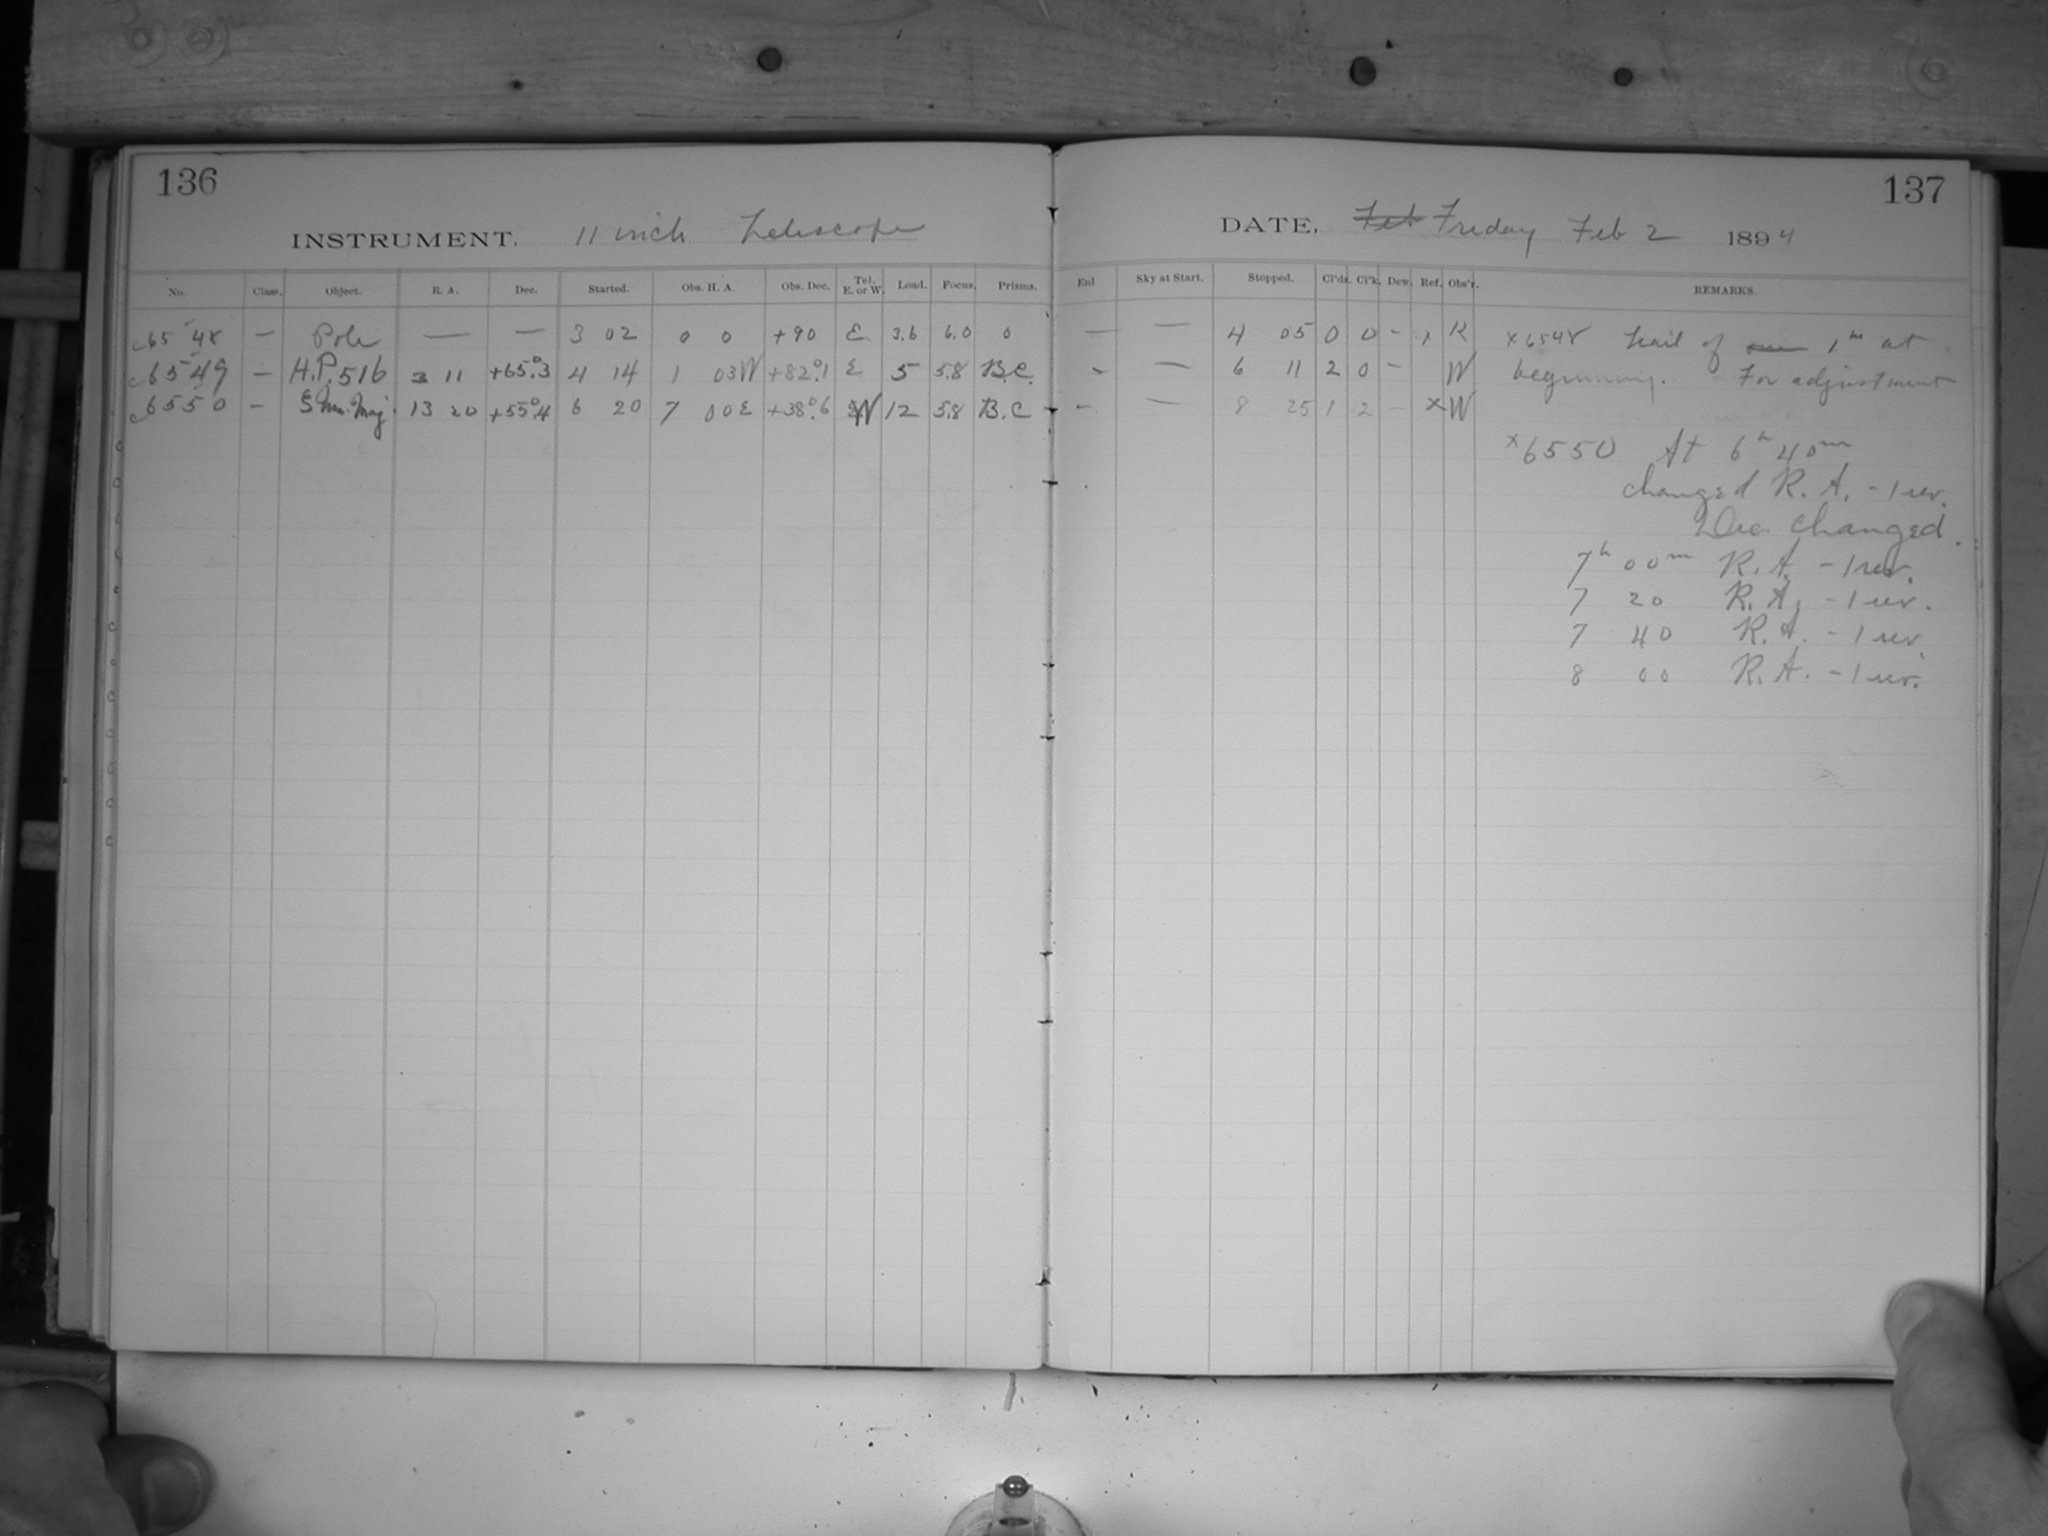 136
INSTRUMENT. 11 inch Telescope
No. Class. Object. R. A. Dec. Started. Obs. H. A. Obs. Dec. Tel. E. or W. Load. Focus. Prisms.
c6548 — Pole — — 3 02 0 0 +90 E 3.6 6.0 0
c6549 — H.P. 516 3 11 +65°.3 4 14 1 03W +82°.1 E 5 5.8 B.C.
c6550 — ξ Urs. Maj. 13 20 +55°.4 6 20 7 00E +38°.6 W 12 5.8 B.C
137
DATE, Feb Friday Feb 2 1894
Enl Sky at Start. Stopped. Cl'ds. Cl'k. Dew. Ref. Obs'r. REMARKS.
— — 4 05 0 0 - x K x6548 trail of 1m at
- — 6 11 2 0 - W beginning. For adjustment
- — 8 25 1 2 - x W
x6550 At 6h 40m
changed R. A. - 1 rev.
Dec. changed.
7h 00m R. A. - 1 rev.
7 20 R. A. - 1 rev.
7 40 R. A. - 1 rev.
8 00 R. A. - 1 rev.